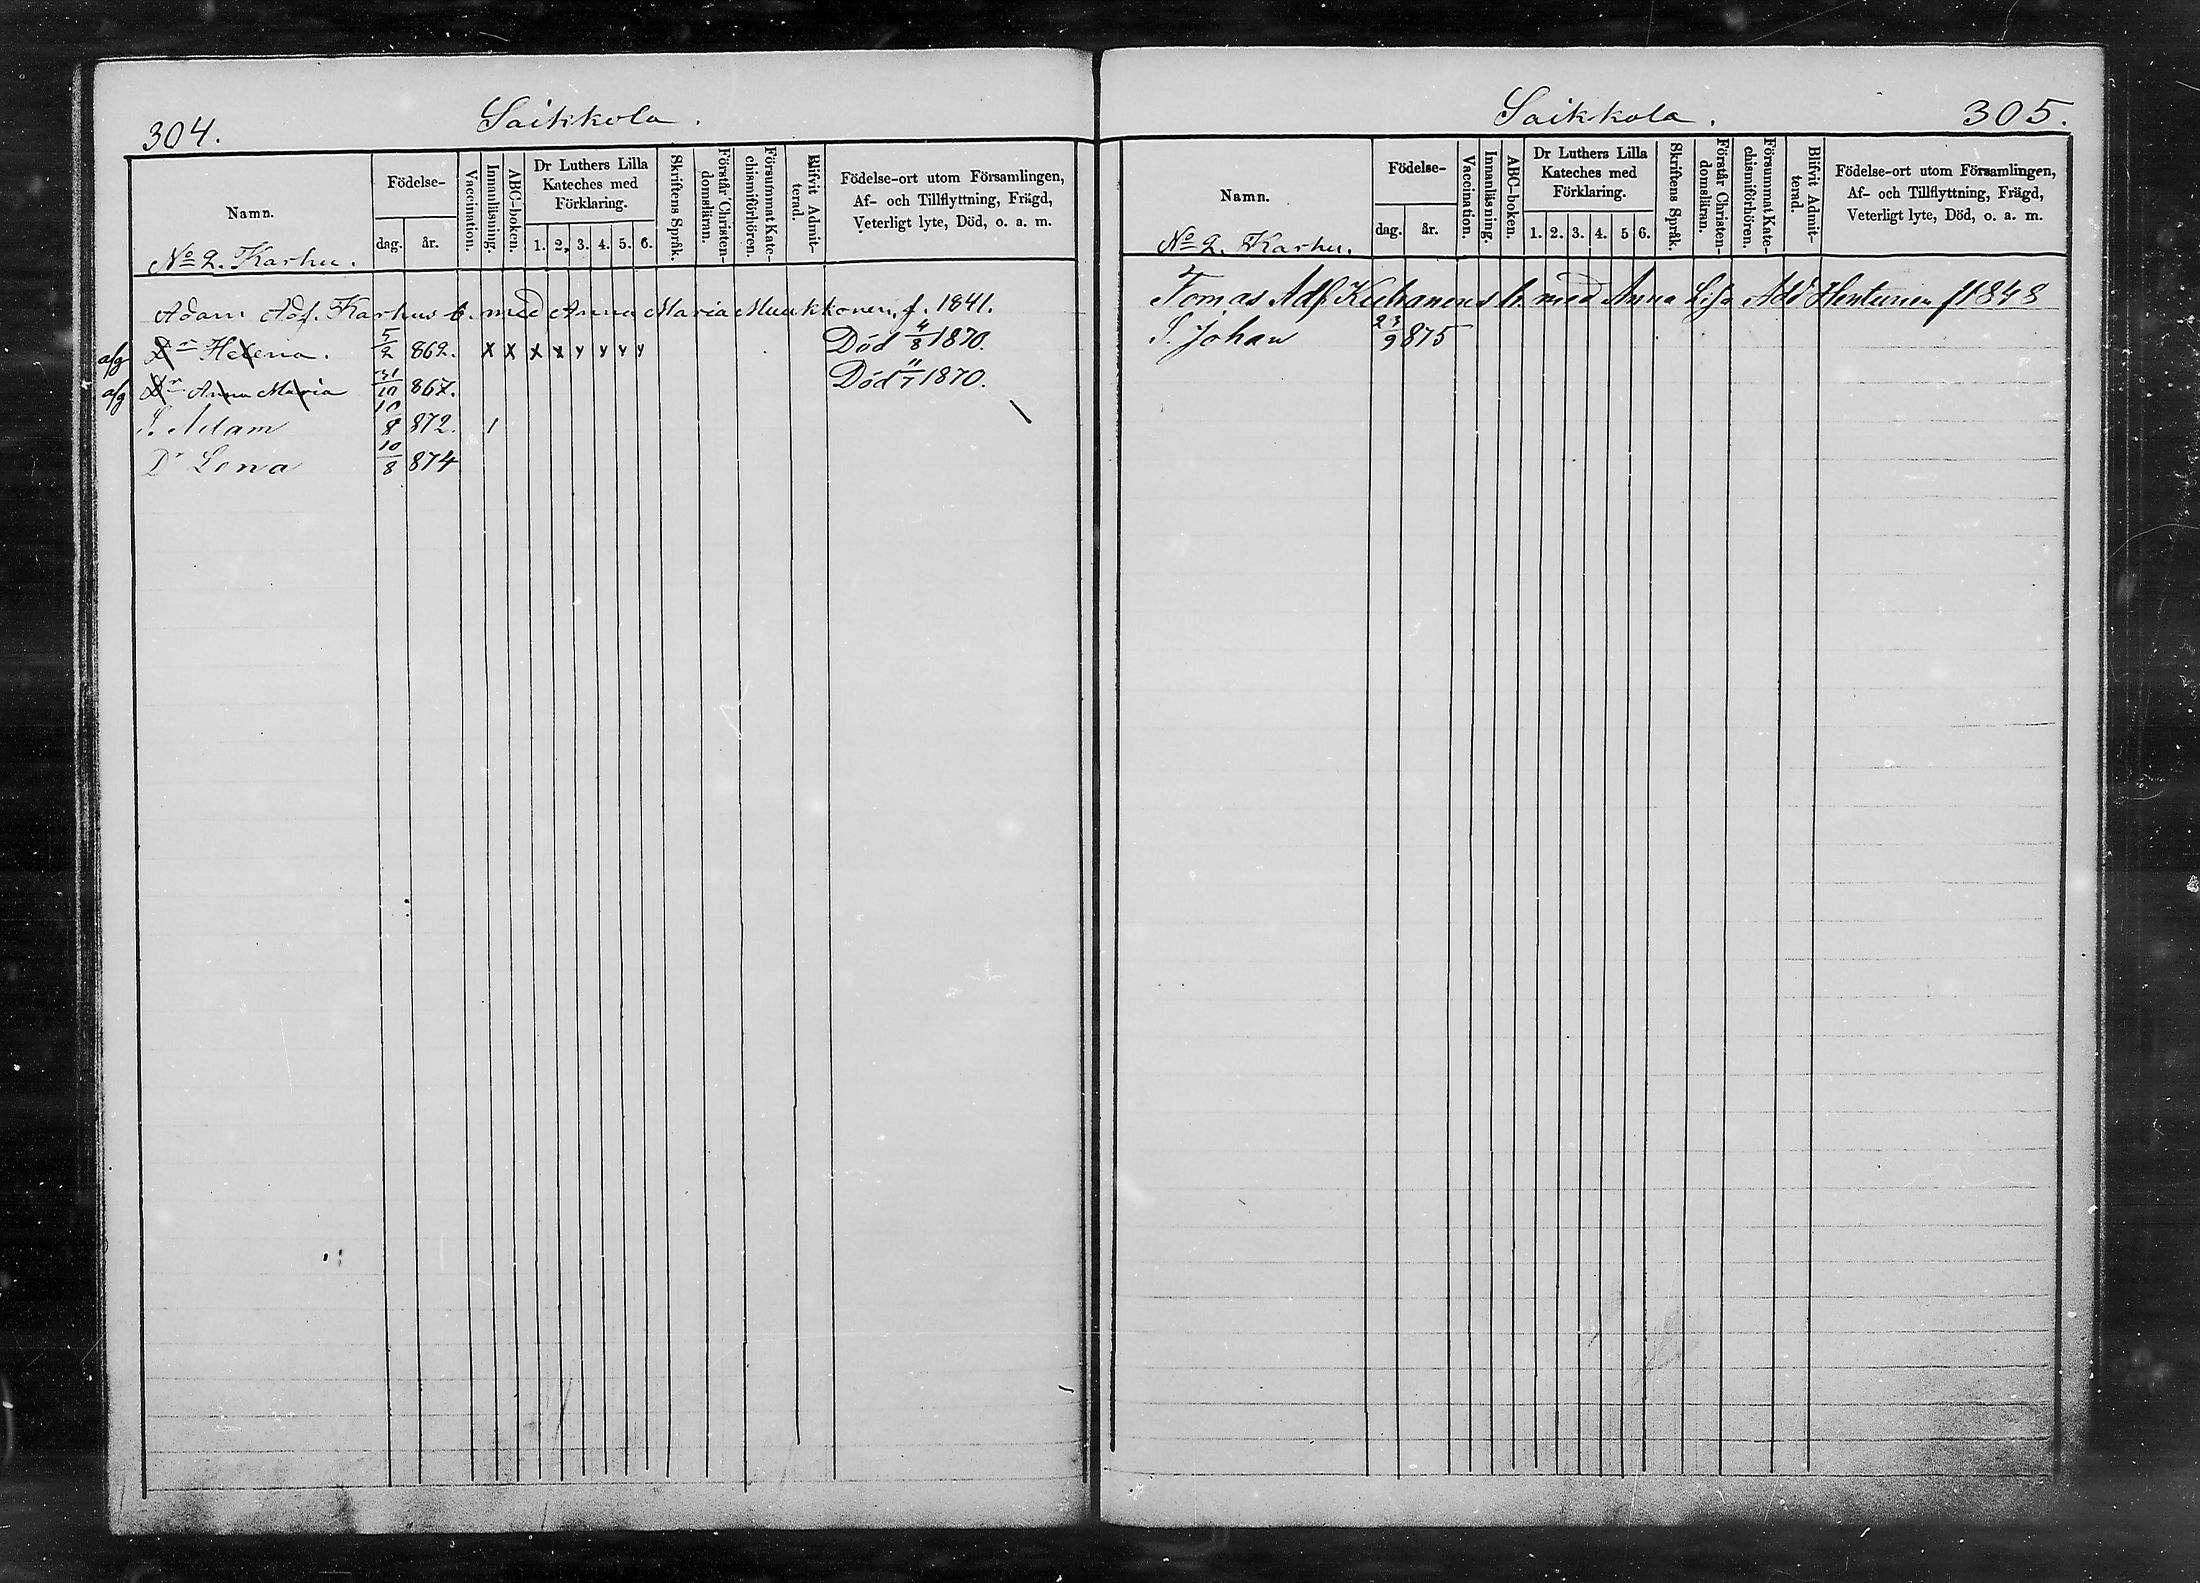 304.
Saikkola.
Namn.
Födelse-
dag. år.
Vaccination.
Innanläsning.
ABC-boken.
Dr Luthers Lilla
Kateches med
Förklaring.
1. 2. 3. 4. 5. 6.
Skriftens Språk.
Förstår Christen-
domsläran.
Försummat Kate-
chismiförhören.
Blifvit Admit-
terad.
Födelse-ort utom Församlingen,
Af- och Tillflyttning, Frägd,
Veterligt lyte, Död, o. a. m.
No 2. Karhu.
Adam Adf. Karhus b. med Anna Maria Muukkonen, f. 1841.
afg Dr Helena. 5/2 862. x x x x y y y y Död 4/8 1870.
afg Dr Anna Maria 31/10 867. Död 11/7 1870.
S. Adam 10/8 872. 1
Dr Lena 10/8 874
Saikkola.
305.
Namn.
Födelse-
dag. år.
Vaccination.
Innanläsning.
ABC-boken.
Dr Luthers Lilla
Kateches med
Förklaring.
1. 2. 3. 4. 5 6.
Skriftens Språk.
Förstår Christen-
domsläran.
Försummat Kate-
chismiförhören.
Blifvit Admit-
terad.
Födelse-ort utom Församlingen,
Af- och Tillflyttning, Frägd,
Veterligt lyte, Död, o. a. m.
No 2. Karhu.
Tomas Adf. b. med Anna Lisa Add Henturien f 1848
S. Johan 23/9 875